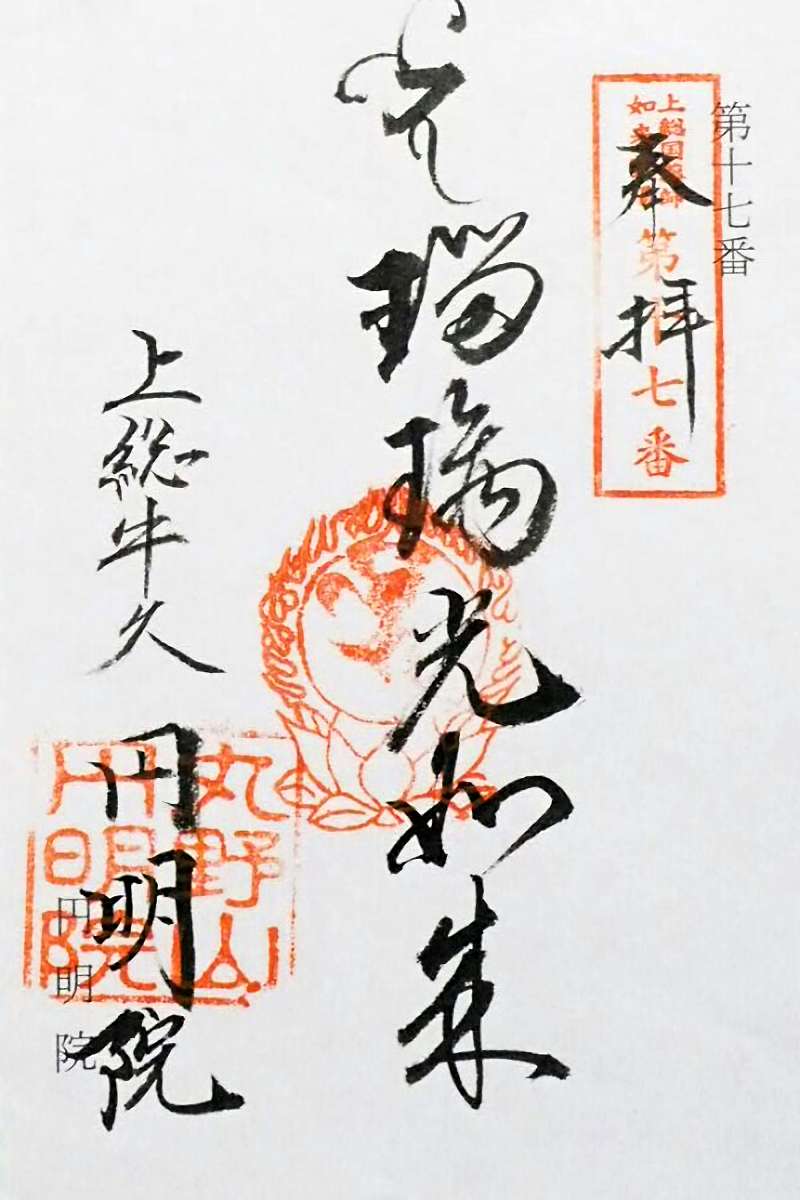 第十七番
上総国薬師
如来
第十七番
奉拝
瑠璃光如来
上総牛久 円明院
丸野山
円明院
円明院